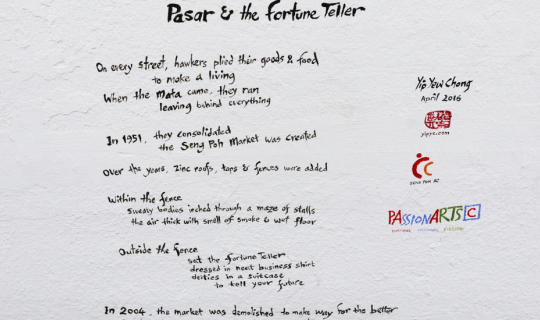 Pasar & the Fortune Teller
On every street, hawkers plied their goods & food
to make a living
When the Mata came, they ran
leaving behind everything
In 1951, they consolidated
the Seng Poh Market was created
Over the years, zinc roofs, taps & fences were added
Within the fence
sweaty bodies inched through a maze of stalls
the air thick with smell of smoke & wet floor
Outside the fence
sat the Fortune Teller
dressed in neat business shirt
deities in a suitcase
to tell your future
In 2004, the market was demolished to make way for the better
Yip Yew Chong
April 2016
yipyc.com
CC
SENG POH RC
PASSIONARTS C